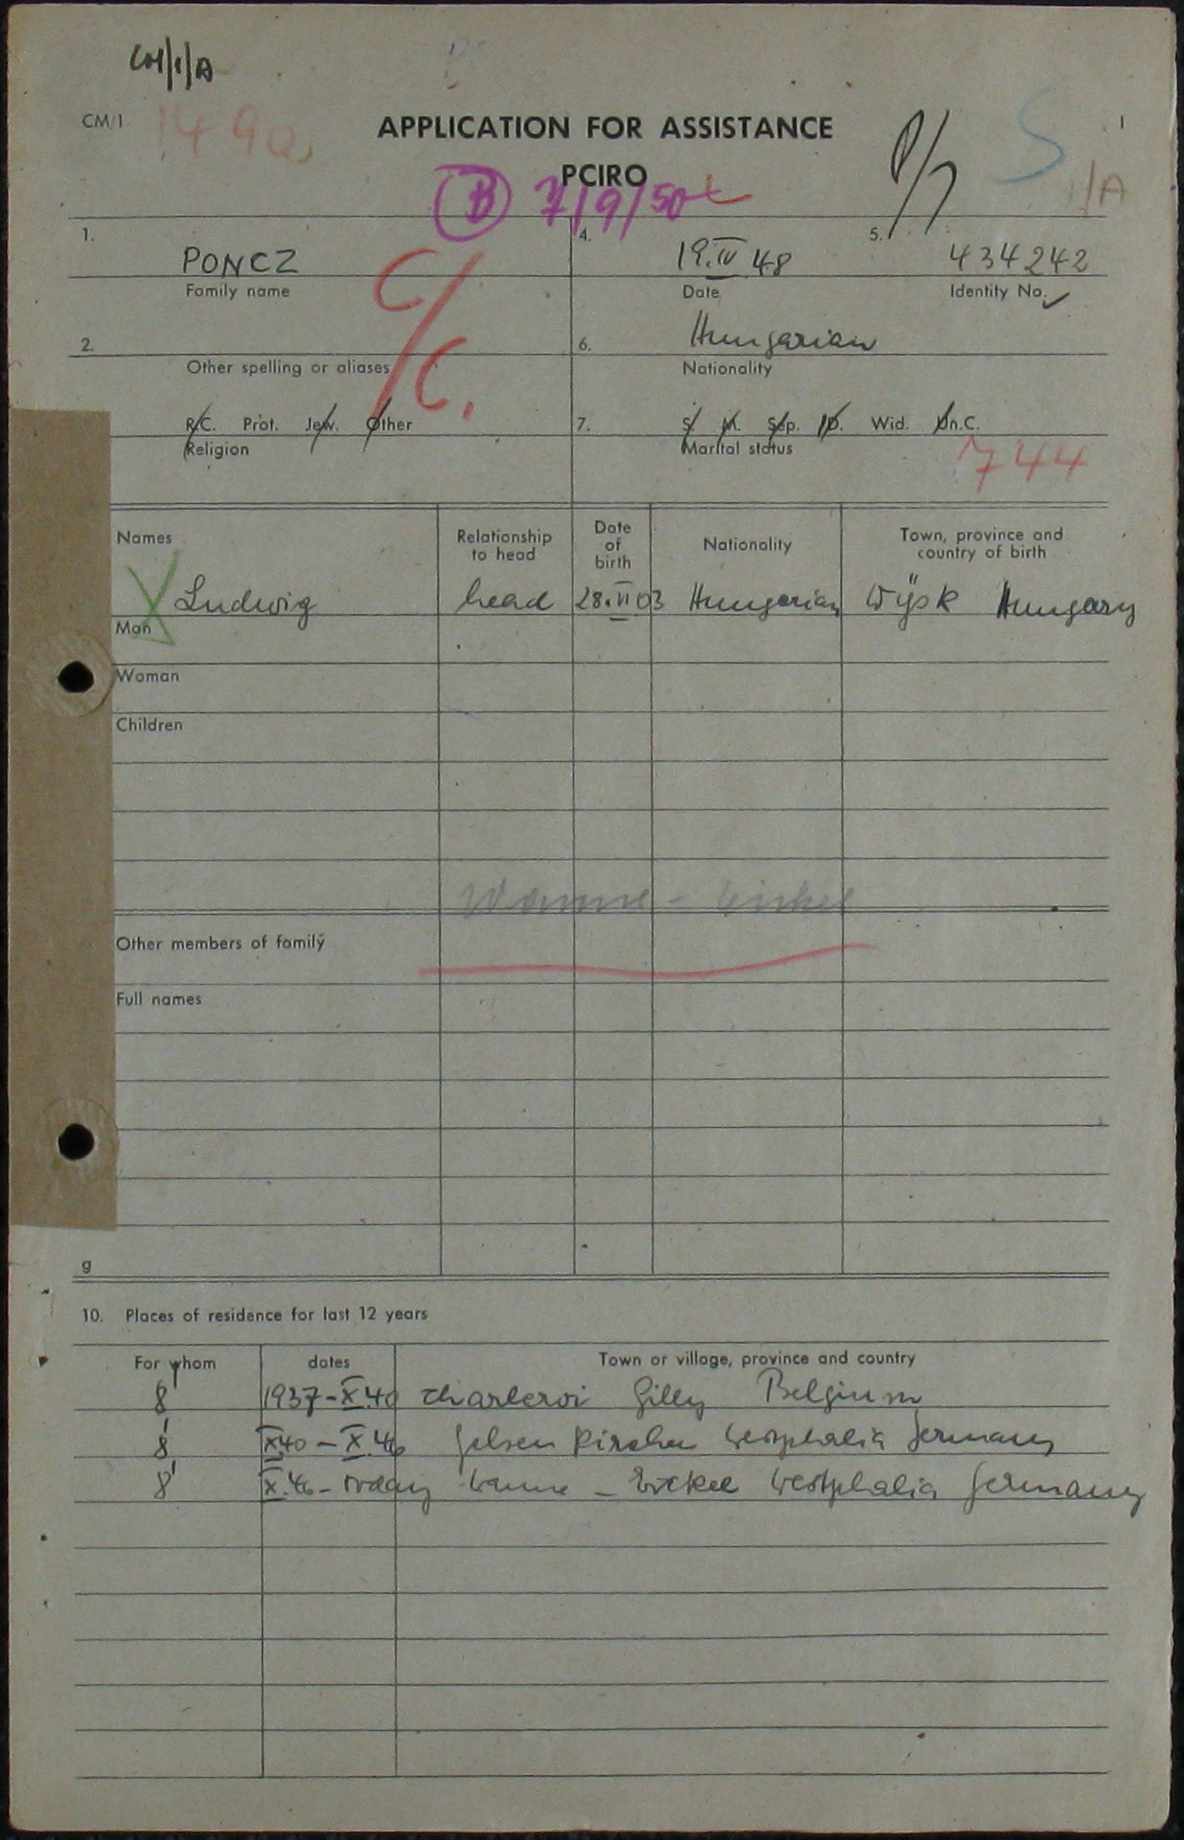 CM/1/A
CM/1 1490, APPLICATION FOR ASSISTANCE 1
PCIRO
B 7/9/50 P/7 S 1/A
1. PONCZ 4. 19.IV 48 5. 434242
Family name Date Identity No.
C/C.
2. 6. Hungarian
Other spelling or aliases Nationality
R.C. Prot. Jew. Other 7. S. M. Sep. D. Wid. Un.C.
Religion Marital status
744
Names Relationship to head Date of birth Nationality Town, province and country of birth
Ludwig head 28.VI 03 Hungarian Hungary
Man
Woman
Children
Wanne - Eickel
Other members of family
Full names
9
10. Places of residence for last 12 years
For whom dates Town or village, province and country
8 1937-X.40 Charleroi Gilly Belgium
8 X40 - X.46 Gelsenkirchen Westphalia Germany
8 X.46 - today Wanne - Eickel Westphalia Germany